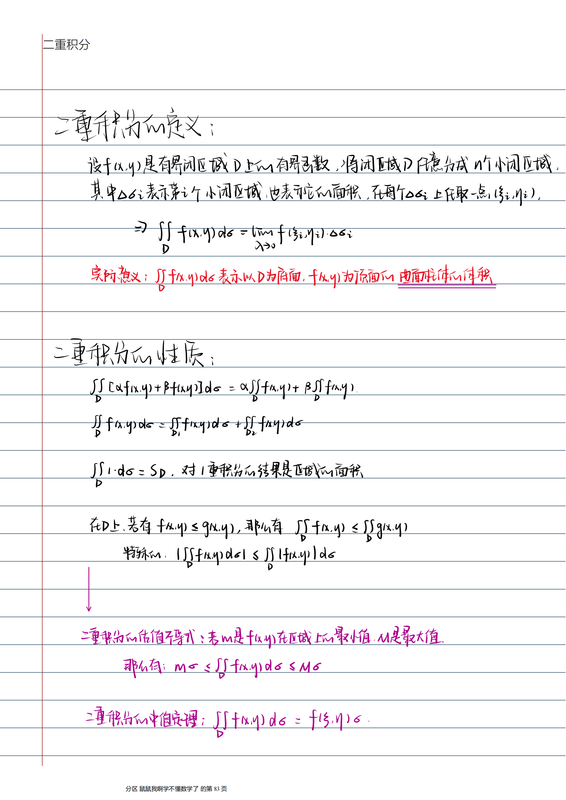 二重积分
二重积分的定义：
设f(x,y)是有界闭区域D上的有界函数，将闭区域D任意分成n个小闭区域，
其中Δσi表示第i个小闭区域，也表示它的面积，在每个Δσi上任取一点(ξi,ηi)，
⇒ ∬_D f(x,y)dσ = lim_{λ→0} f(ξi,ηi)·Δσi
实际意义：∬_D f(x,y)dσ 表示以D为底面，f(x,y)为顶面的曲面柱体的体积
二重积分的性质：
∬_D [αf(x,y)+βf(x,y)]dσ = α∬_D f(x,y)+β∬_D f(x,y).
∬_D f(x,y)dσ = ∬_{D1} f(x,y)dσ + ∬_{D2} f(x,y)dσ
∬_D 1·dσ = S_D，对1重积分的结果是区域的面积
在D上，若有 f(x,y)≤g(x,y)，那么有 ∬_D f(x,y) ≤ ∬_D g(x,y)
特殊的，|∬_D f(x,y)dσ| ≤ ∬_D |f(x,y)|dσ
二重积分的估值不等式：若m是f(x,y)在区域上的最小值，M是最大值.
那么有：mσ ≤ ∬_D f(x,y)dσ ≤ Mσ
二重积分的中值定理：∬_D f(x,y)dσ = f(ξ,η)σ.
分区 鼠鼠我啊学不懂数学了 的第 83 页